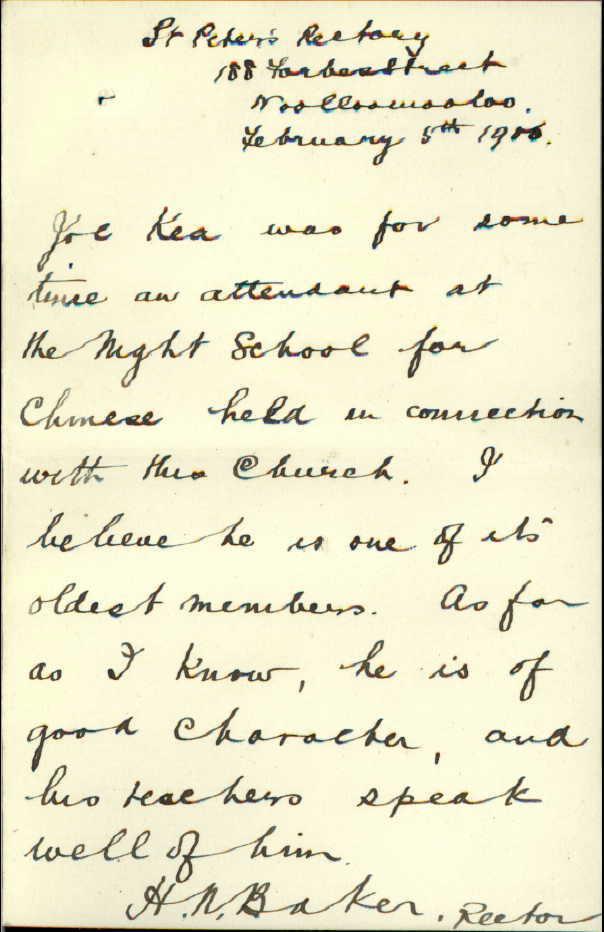 St Peter's Rectory
188 Forbes Street
Woolloomooloo.
February 5th
Kea was for some
time an attendant at
the Night School for
Chinese held in connection
with this Church. I
believe he is one of its
oldest members. As far
as I know, he is of
good character, and
his teachers speak
well of him.
H. N. Baker. Rector